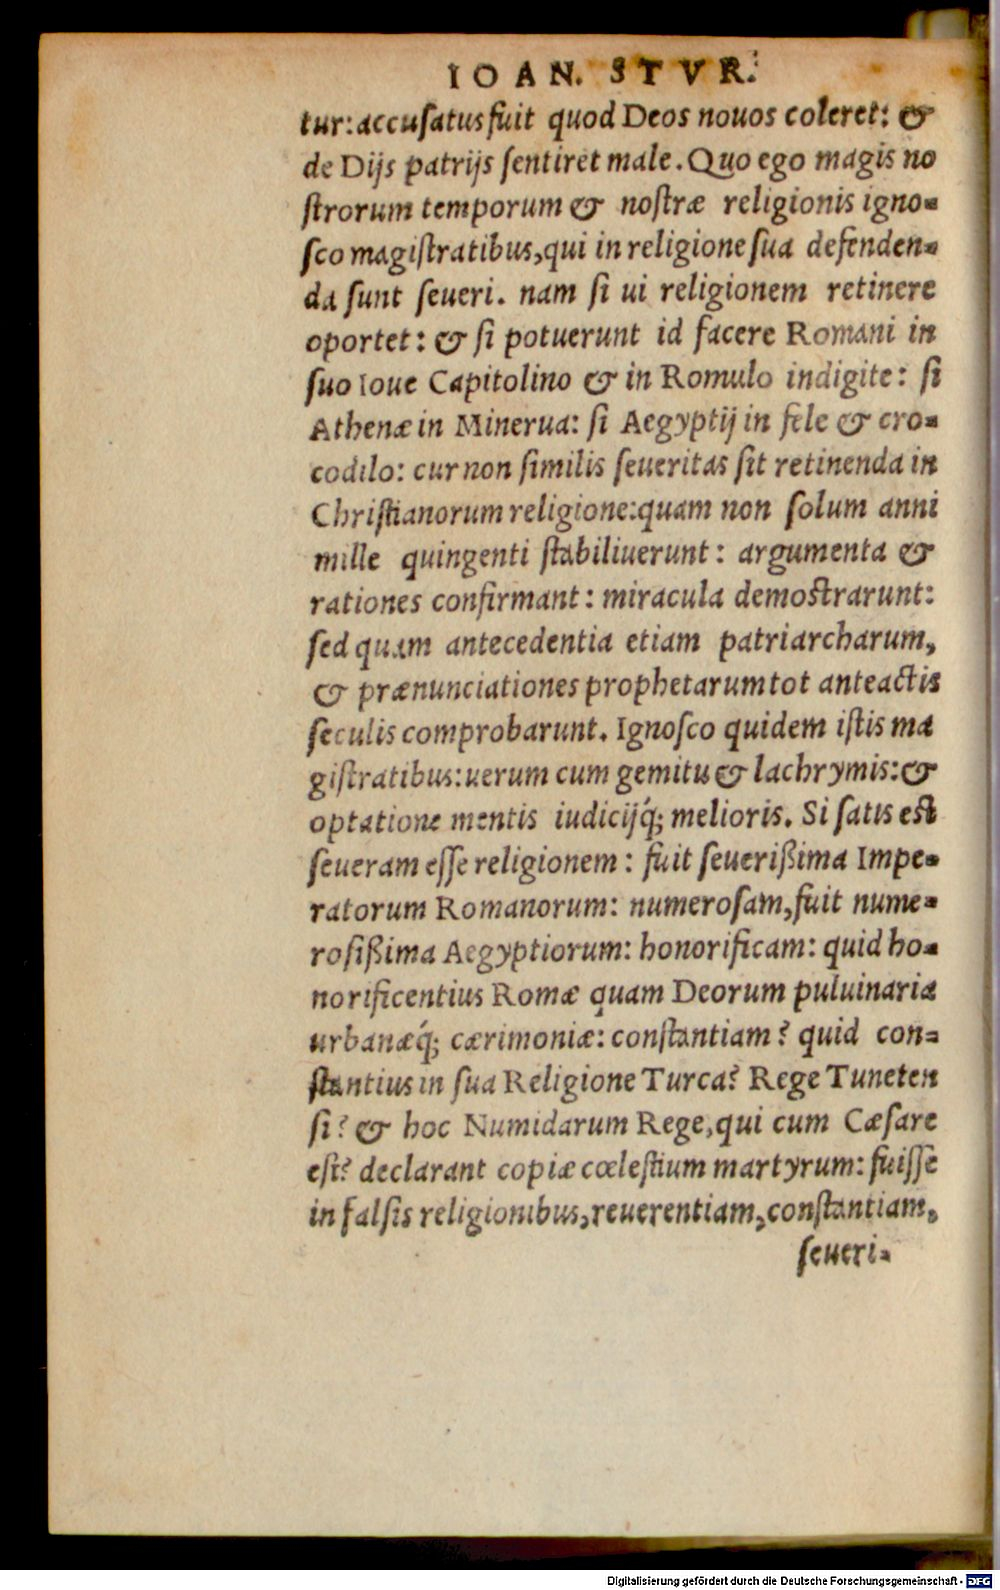 IOAN. STVR.
tur: accuſatus fuit quod Deos nouos coleret: &
de Dijs patrijs ſentiret male. Quo ego magis no
ſtrorum temporum & noſtræ religionis igno-
ſco magiſtratibus, qui in religione ſua defenden-
da ſunt ſeueri. nam ſi ui religionem retinere
oportet: & ſi potuerunt id facere Romani in
ſuo Ioue Capitolino & in Romulo indigite: ſi
Athenæ in Minerua: ſi Aegyptij in fele & cro-
codilo: cur non ſimilis ſeueritas ſit retinenda in
Chriſtianorum religione: quam non ſolum anni
mille quingenti ſtabiliuerunt: argumenta &
rationes confirmant: miracula demoſtrarunt:
ſed quam antecedentia etiam patriarcharum,
& prænunciationes prophetarum tot anteactis
ſeculis comprobarunt. Ignoſco quidem iſtis ma
giſtratibus: uerum cum gemitu & lachrymis: &
optatione mentis iudicijq́; melioris. Si ſatis eſt
ſeueram eſſe religionem: fuit ſeuerißima Impe-
ratorum Romanorum: numeroſam, fuit nume-
roſißima Aegyptiorum: honorificam: quid ho-
norificentius Romæ quam Deorum puluinaria
urbanæq́; cærimoniæ: conſtantiam? quid con-
ſtantius in ſua Religione Turca? Rege Tuneten
ſi? & hoc Numidarum Rege, qui cum Cæſare
eſt? declarant copiæ cœleſtium martyrum: fuiſſe
in falſis religionibus, reuerentiam, conſtantiam,
ſeueri-
Digitalisierung gefördert durch die Deutsche Forschungsgemeinschaft - DFG